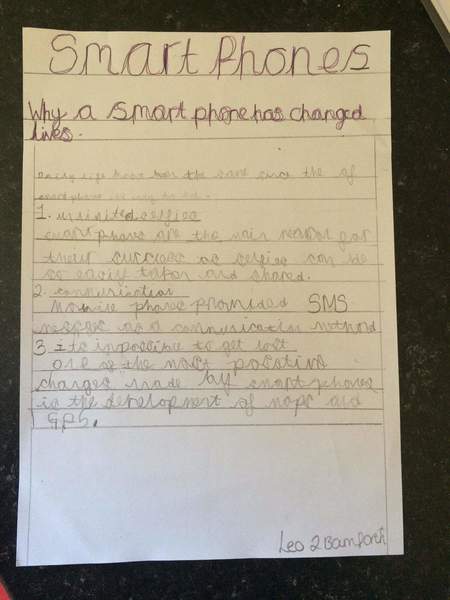 Smart Phones
Why a smart phone has changed
lives.
Daily life has the same since the of
smartphone
1. unlimited selfies
smart phones are the main reason for
their success as selfies can be
so easily taken and shared.
2. communication
Mobile phones provided SMS
messages as a communication method
3 its impossible to get lost
one of the most positive
changes made by smart phones
is the development of maps and
GPS.
Leo 2Bamforth